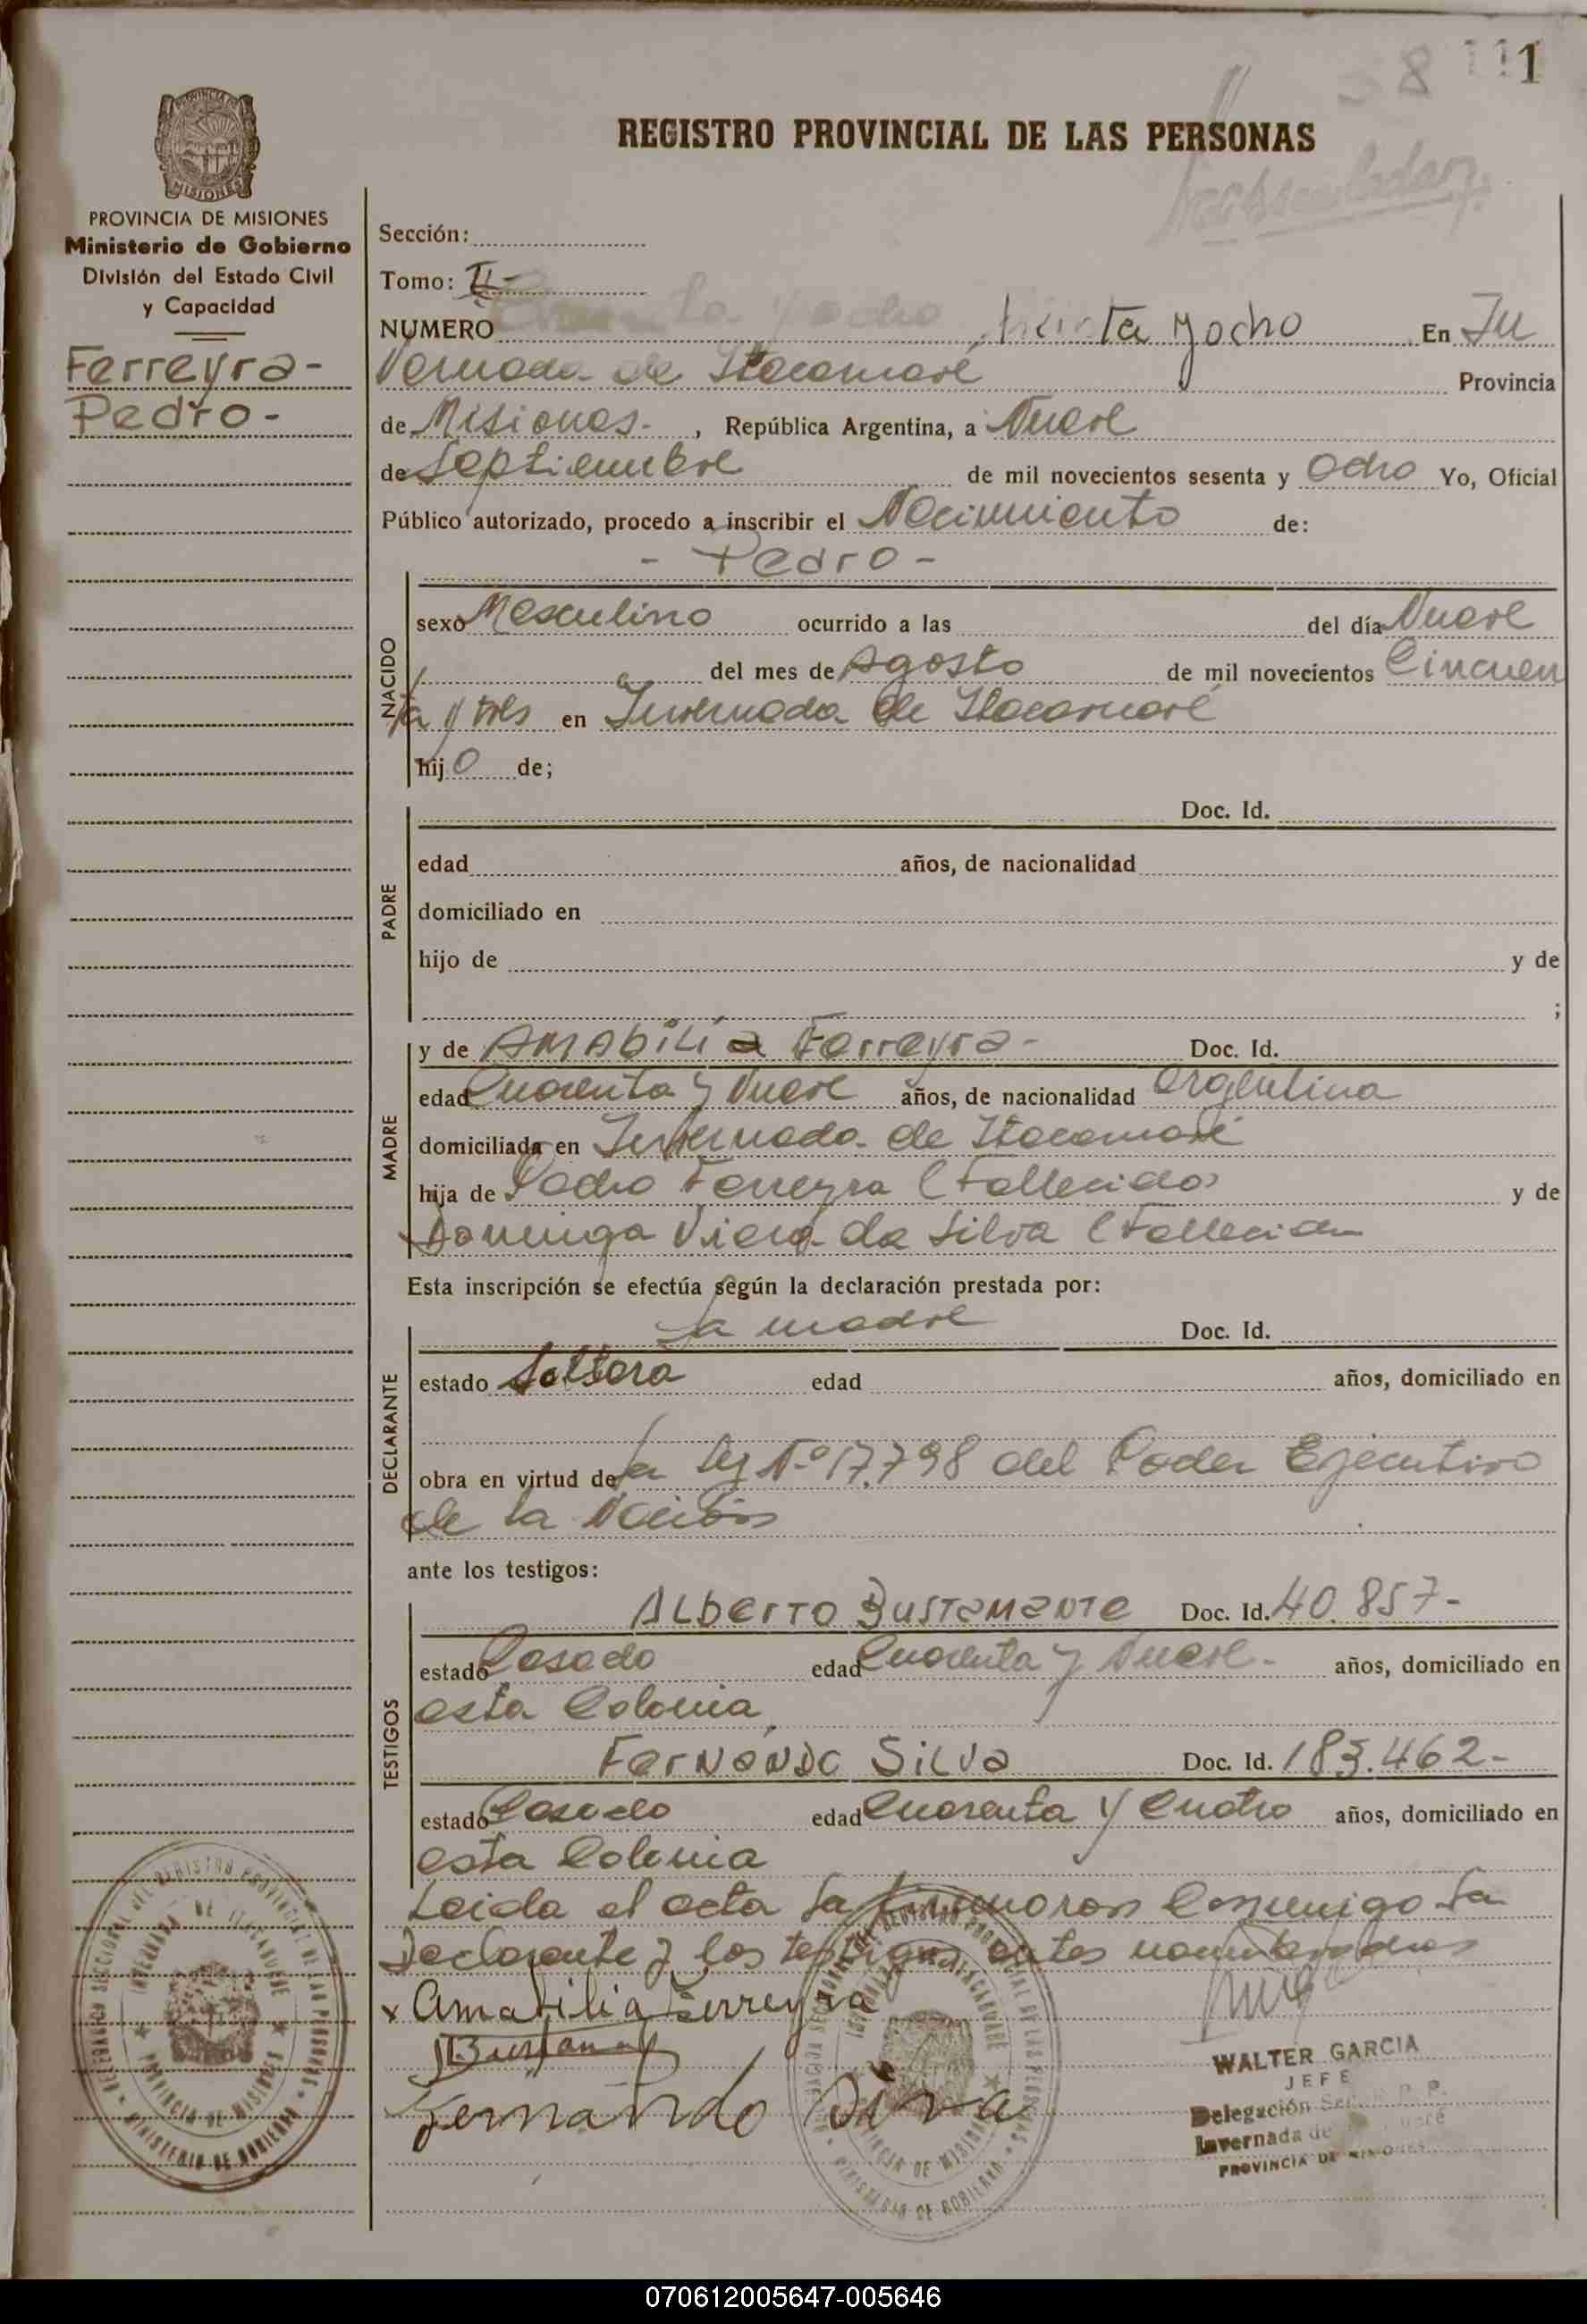 38 111
REGISTRO PROVINCIAL DE LAS PERSONAS
PROVINCIA DE MISIONES
Ministerio de Gobierno
División del Estado Civil
y Capacidad
Ferreyra-
Pedro-
Sección:
Tomo: II-
NUMERO treinta y ocho En In
vernada de Itacaruaré Provincia
de Misiones- , República Argentina, a Nueve
de Septiembre de mil novecientos sesenta y Ocho Yo, Oficial
Público autorizado, procedo a inscribir el Nacimiento de:
- Pedro -
NACIDO
sexo Masculino ocurrido a las del día Nueve
del mes de Agosto de mil novecientos Cincuen
ta y tres en Invernada de Itacaruaré
hijo de;
PADRE
Doc. Id.
edad años, de nacionalidad
domiciliado en
hijo de y de
;
MADRE
y de Amabilia Ferreyra- Doc. Id.
edad Cuarenta y Nueve años, de nacionalidad Argentina
domiciliada en Invernada de Itacaruaré
hija de Pedro Ferreyra (Fallecido) y de
Dominga Viera da Silva (Fallecida
Esta inscripción se efectúa según la declaración prestada por:
DECLARANTE
La madre Doc. Id.
estado Soltera edad años, domiciliado en
obra en virtud de la Ley Nº 17.798 del Poder Ejecutivo
de la Nación
ante los testigos:
TESTIGOS
Alberto Bustamante Doc. Id. 40.857-
estado Casado edad Cuarenta y Nueve- años, domiciliado en
esta Colonia
Fernando Silva Doc. Id. 183.462-
estado Casado edad Cuarenta y Cuatro años, domiciliado en
esta Colonia
Leida el acta la firmaron Conmigo la
Declarante y los testigos antes nombrados
x Amabilia Ferreyra
Fernando Silva
WALTER GARCIA
JEFE
Delegación
Invernada de
PROVINCIA DE MISIONES
070612005647-005646